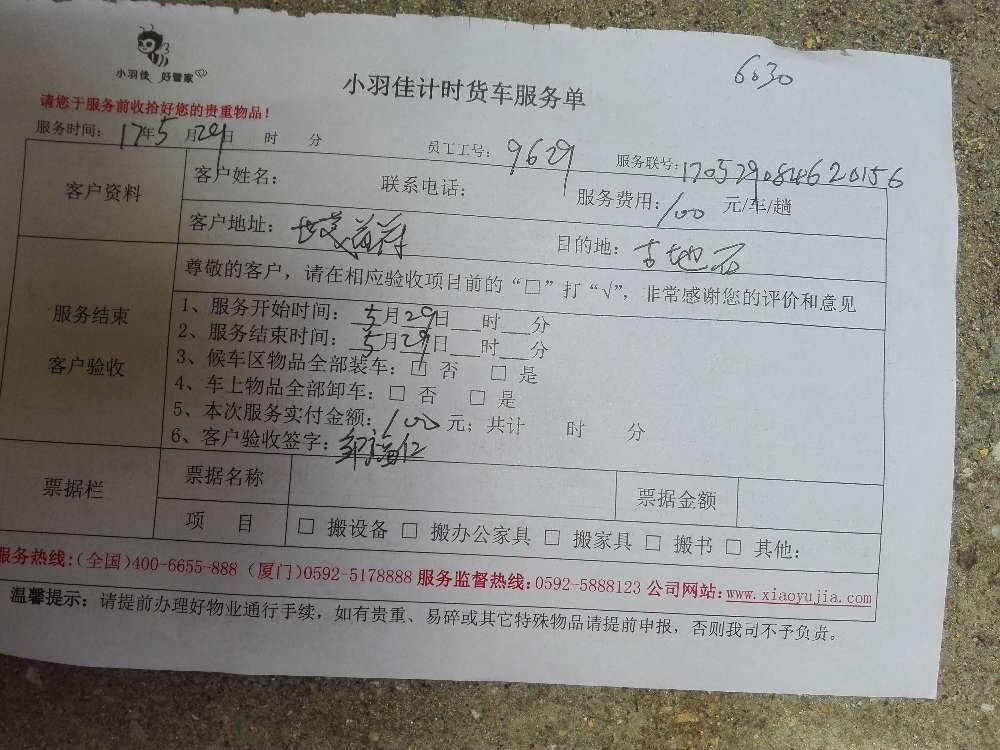 6630
小羽佳 好管家
小羽佳计时货车服务单
请您于服务前收拾好您的贵重物品！
服务时间： 17年5月29日 时 分 员工工号：9629 服务联号：170529084620156
客户资料 客户姓名： 联系电话： 服务费用：100 元/车/趟
客户地址： 目的地：古地石
尊敬的客户，请在相应验收项目前的“□”打“√”，非常感谢您的评价和意见
服务结束 客户验收
1、服务开始时间：5月29日___时___分
2、服务结束时间：5月29日___时___分
3、候车区物品全部装车：□ 否 □ 是
4、车上物品全部卸车：□ 否 □ 是
5、本次服务实付金额：100元；共计 时 分
6、客户验收签字：
票据栏 票据名称 票据金额
项 目 □ 搬设备 □ 搬办公家具 □ 搬家具 □ 搬书 □ 其他：
服务热线：(全国)400-6655-888 (厦门)0592-5178888 服务监督热线：0592-5888123 公司网站：www.xiaoyujia.com
温馨提示：请提前办理好物业通行手续，如有贵重、易碎或其它特殊物品请提前申报，否则我司不予负责。